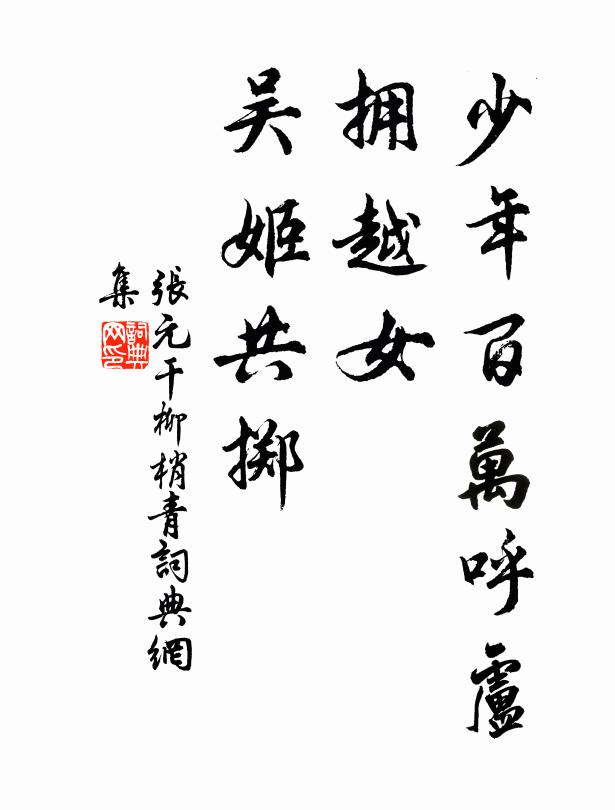 少年百萬呼盧
拥越女
吴姬共掷
張元干柳梢青詞典網
集
詞典网印